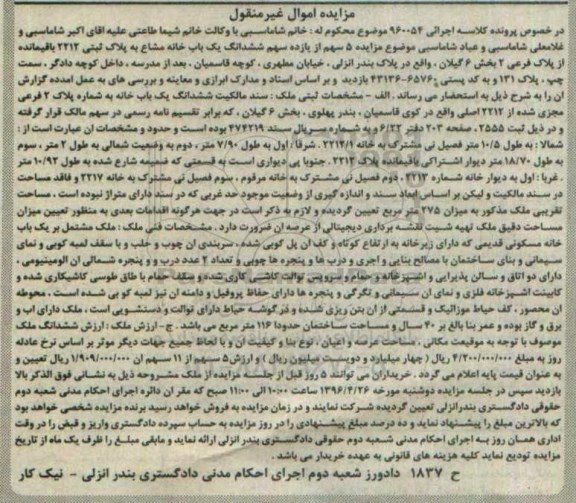 مزایده اموال غیرمنقول
در خصوص پرونده کلاسه اجرائی ۹۶۰۰۵۴ موضوع محکوم له : خانم شاماسبی با وکالت خانم شیما طاعتی علیه آقای اکبر شاماسبی و
غلامعلی شاماسبی و عباد شاماسبی موضوع مزایده ۵ سهم از یازده سهم ششدانگ یک باب خانه مشاع به پلاک ثبتی ۲۲۱۲ باقیمانده
از پلاک فرعی ۲ بخش ۶ گیلان ، واقع در بندر انزلی ، خیابان مطهری ، کوچه قاسمیان ، بعد از مدرسه ، داخل کوچه دادگر ، سمت
چپ ، پلاک ۱۳۱ و به کد پستی ۶۵۷۶-۴۳۱۳۶ بازدید و بر اساس اسناد و مدارک ابرازی و معاینه و بررسی های به عمل آمده گزارش
آن را به شرح ذیل به استحضار می رساند . الف - مشخصات ثبتی ملک : سند مالکیت ششدانگ یک باب خانه به شماره پلاک ۲ فرعی
مجزی شده از ۲۲۱۲ اصلی واقع در کوی قاسمیان ، بندر پهلوی ، بخش ۶ گیلان ، که برابر تقسیم نامه رسمی در سهم مالک قرار گرفته
و در ذیل ثبت ۲۵۵۵ ، صفحه ۲۰۳ دفتر ۶/۲۲ و به شماره سریال سند ۴۷۴۲۱۹ بوده است و حدود و مشخصات آن عبارت است از :
شمالا : به طول ۱۰/۵ متر فصیل نی مشترک به خانه ۲۲۱۲/۱ . شرقا : اول به طول ۷/۹۰ متر ، دوم به وضعیت شمالی به طول ۲ متر ، سوم
به طول ۱۸/۷۰ متر دیوار اشتراکی باقیمانده پلاک ۲۲۱۲ . جنوبا پی دیواری است به قسمتی که ضمیمه شارع شده به طول ۱۰/۹۲ متر
. غربا : اول به دیوار خانه شماره ۲۲۱۳ ، دوم فصیل نی مشترک به خانه مرقوم . سوم فصیل نی مشترک به خانه ۲۲۱۷ و فاقد مساحت
در سند مالکیت و لیکن بر اساس ابعاد سند و اندازه گیری از وضعیت موجود حد غربی که در سند دارای متراژ نبوده است . مساحت
تقریبی ملک مذکور به میزان ۲۷۵ متر مربع تعیین گردیده و لازم به ذکر است در جهت هرگونه اقدامات بعدی به منظور تعیین میزان
مساحت دقیق ملک تهیه شیت نقشه برداری دیجیتالی از عرصه آن ضرورت دارد . مشخصات فنی ملک : ملک مشتمل بر یک باب
خانه مسکونی قدیمی که دارای زیرخانه به ارتفاع کوتاه و کف آن پل کوبی شده ، سربندی آن چوب و حلب و با سقف لمبه کوبی و نمای
سیمانی و بنای ساختمان با مصالح بنایی و آجری و درب ها و پنجره ها چوبی و تعداد ۲ عدد درب و و پنجره شمالی آن آلومینیومی ،
دارای دو اتاق و سالن پذیرایی و آشپزخانه و حمام و سرویس توالت کاشی کاری شده و سقف حمام با طاق طوسی کاشیکاری شده و
کابینت آشپزخانه فلزی و نمای آن سیمانی و تگرگی و پنجره ها دارای حفاظ پروفیل و دامنه آن نیز لمبه کو بی شده است . محوطه
آن محصور ، کف حیاط موزائیک و قسمتی از آن بتن ریزی شده و در گوشه حیاط دارای توالت و دستشویی است . ملک دارای آب و
برق و گاز بوده و عمر بنا بالغ بر ۴۰ سال و مساحت ساختمان حدودا ۱۱۶ متر مربع می باشد . ج- ارزش ملک : ارزش ششدانگ ملک
موصوف با توجه به موقعیت مکانی ، مساحت عرصه و اعیان ، نوع بنا و کیفیت آن و با لحاظ جمیع جهات دیگر موثر بر اساس نرخ عادله
روز به مبلغ ۴/۲۰۰/۰۰۰/۰۰۰ ریال ( چهار میلیارد و دویست میلیون ریال ) و ارزش ۵ سهم از ۱۱ سهم آن ۱/۹۰۹/۰۰۰/۰۰۰ ریال تعیین و
به عنوان قیمت پایه اعلام می گردد . خریداران می توانند ۵ روز قبل از جلسه مزایده از ملک مشروحه ذیل به نشانی فوق الذکر بالا
بازدید سپس در جلسه مزایده دوشنبه مورخه ۱۳۹۶/۴/۲۶ ساعت ۱۰:۰۰ الی ۱۱:۰۰ صبح که مقر آن دائره اجرای احکام مدنی شعبه دوم
حقوقی دادگستری بندرانزلی تعیین گردیده شرکت نمایند و در زمان مزایده به فروش خواهد رسید برنده مزایده شخصی خواهد بود
که بالاترین مبلغ را پیشنهاد نماید و ده درصد مبلغ پیشنهادی را در روز مزایده به حساب سپرده دادگستری واریز و قبض را در وقت
اداری همان روز به اجرای احکام مدنی شعبه دوم حقوقی دادگستری بندر انزلی ارائه نماید و مابقی مبلغ را ظرف یک ماه از تاریخ
مزایده تودیع نماید کلیه هزینه های قانونی به عهده خریدار می باشد .
ح ۱۸۳۷ دادورز شعبه دوم اجرای احکام مدنی دادگستری بندر انزلی - نیک کار